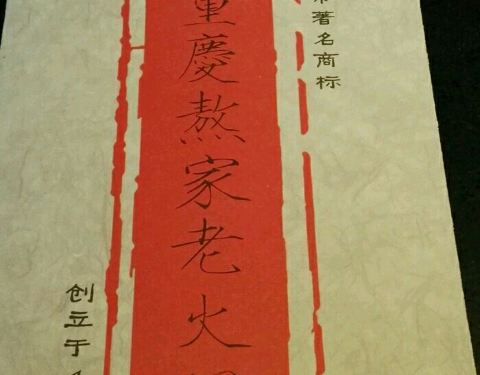 著名商标
重慶熬家老火
创立于